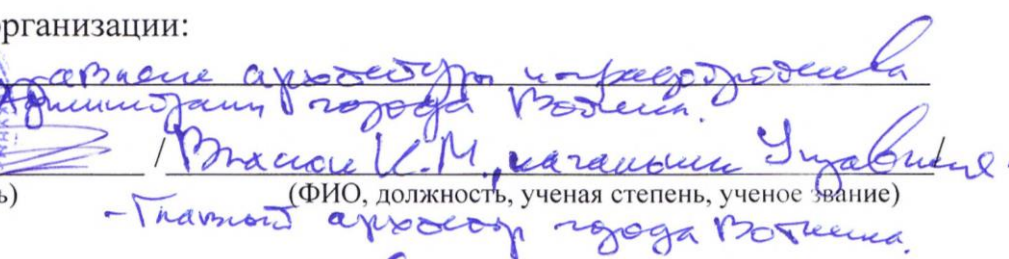 организации:
Управление архитектуры и градостроительства
Администрации города Воткинска.
/ Власов К.М., начальник Управления- /
ь) (ФИО, должность, ученая степень, ученое звание)
-Главный архитектор города Воткинска.